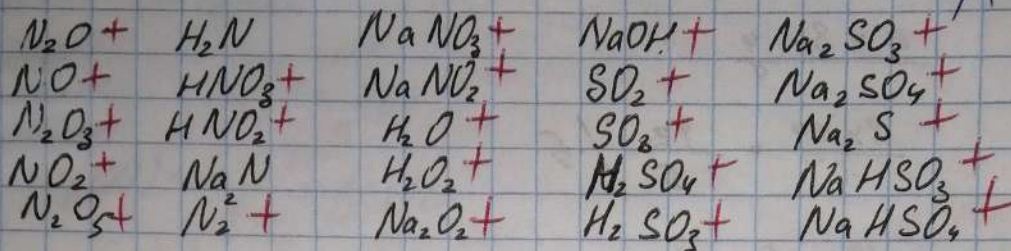 N₂O + H₂N NaNO₃ + NaOH + Na₂SO₃ +
NO + HNO₃ + NaNO₂ + SO₂ + Na₂SO₄ +
N₂O₃ + HNO₂ + H₂O + SO₃ + Na₂S +
NO₂ + NaN H₂O₂ + H₂SO₄ + NaHSO₃ +
N₂O₅ + N₂² + Na₂O₂ + H₂SO₃ + NaHSO₄ +